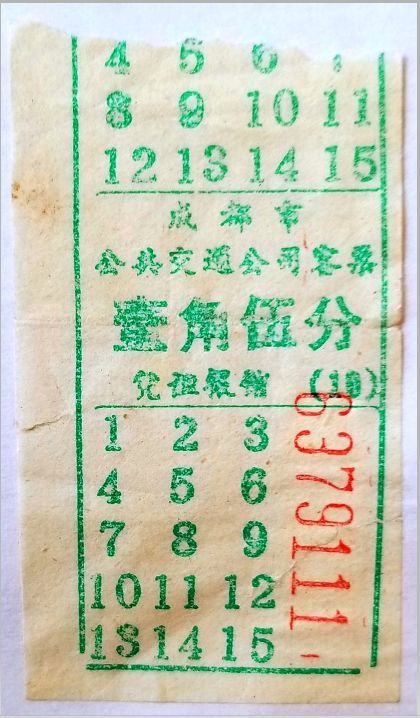 4 5 6
8 9 10 11
12 13 14 15
成都市
公共交通公司客票
壹角伍分
凭证报销 (10)
1 2 3
4 5 6
7 8 9
10 11 12
13 14 15
6379111